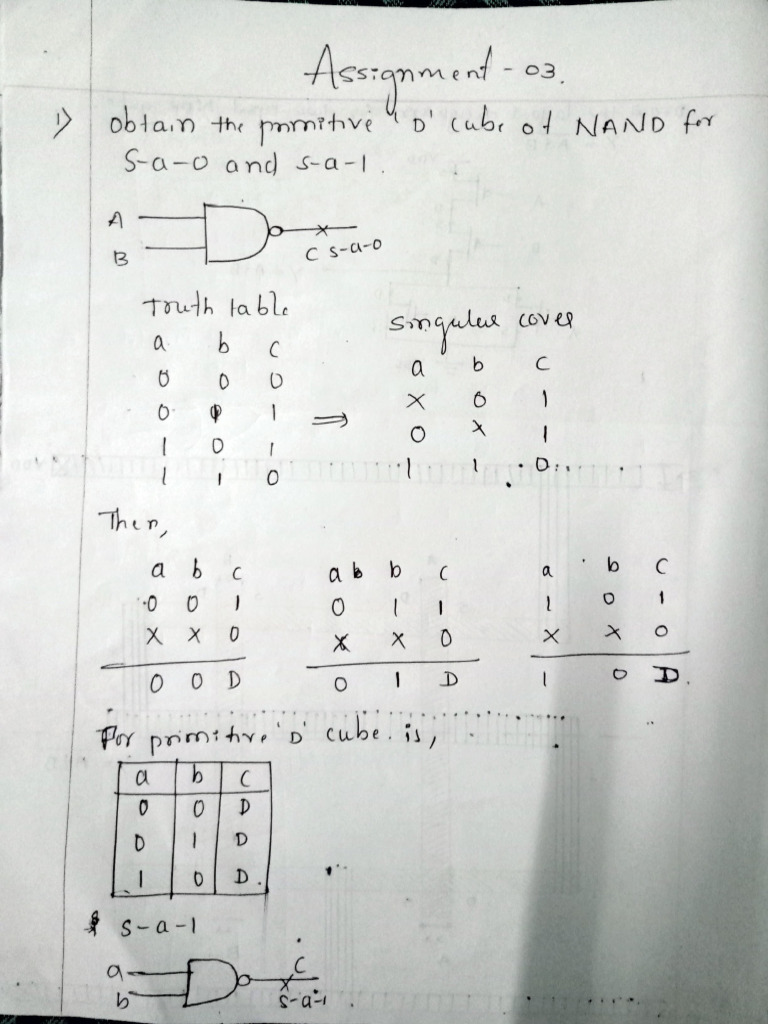 Assignment - 03.
1) obtain the primitive 'D' cube of NAND for
S-a-0 and s-a-1.
A
B
C s-a-0
Truth table
a b c
0 0 0
0 1 1
1 0 1
1 1 0
⇒
singular cover
a b c
X 0 1
0 X 1
1 1 0
Then,
a b c
0 0 1
X X 0
0 0 D
a b c
0 1 1
X X 0
0 1 D
a b c
1 0 1
X X 0
1 0 D.
For primitive 'D' cube is,
a b c
0 0 D
0 1 D
1 0 D.
s-a-1
a
b
C
s-a-1